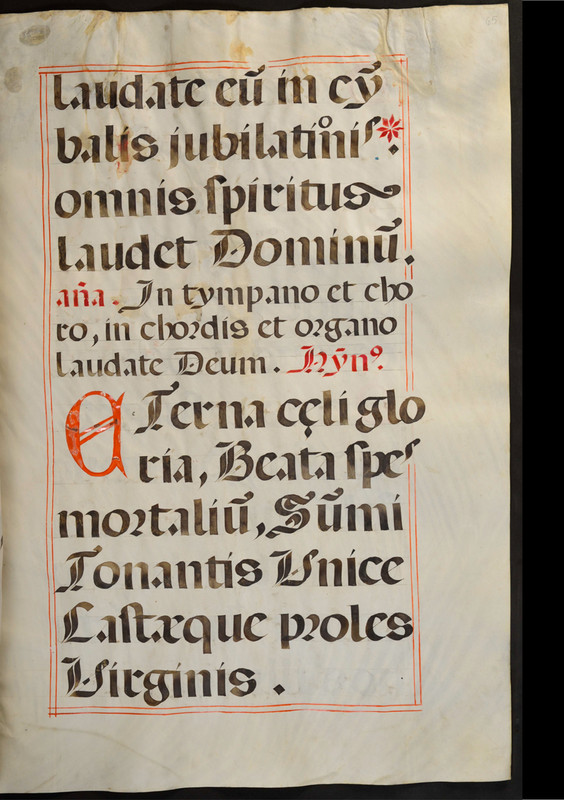 laudate eũ in cỹ
balis jubilatiõnis *.
omnis spiritus
laudet Dominũ.
aña. In tympano et cho
ro, in chordis et organo
laudate Deum. Hỹnº.
ÆTerna cęli glo
ria, Beata spes
mortaliũ, Sũmi
Tonantis Unice
Castæque proles
Virginis.